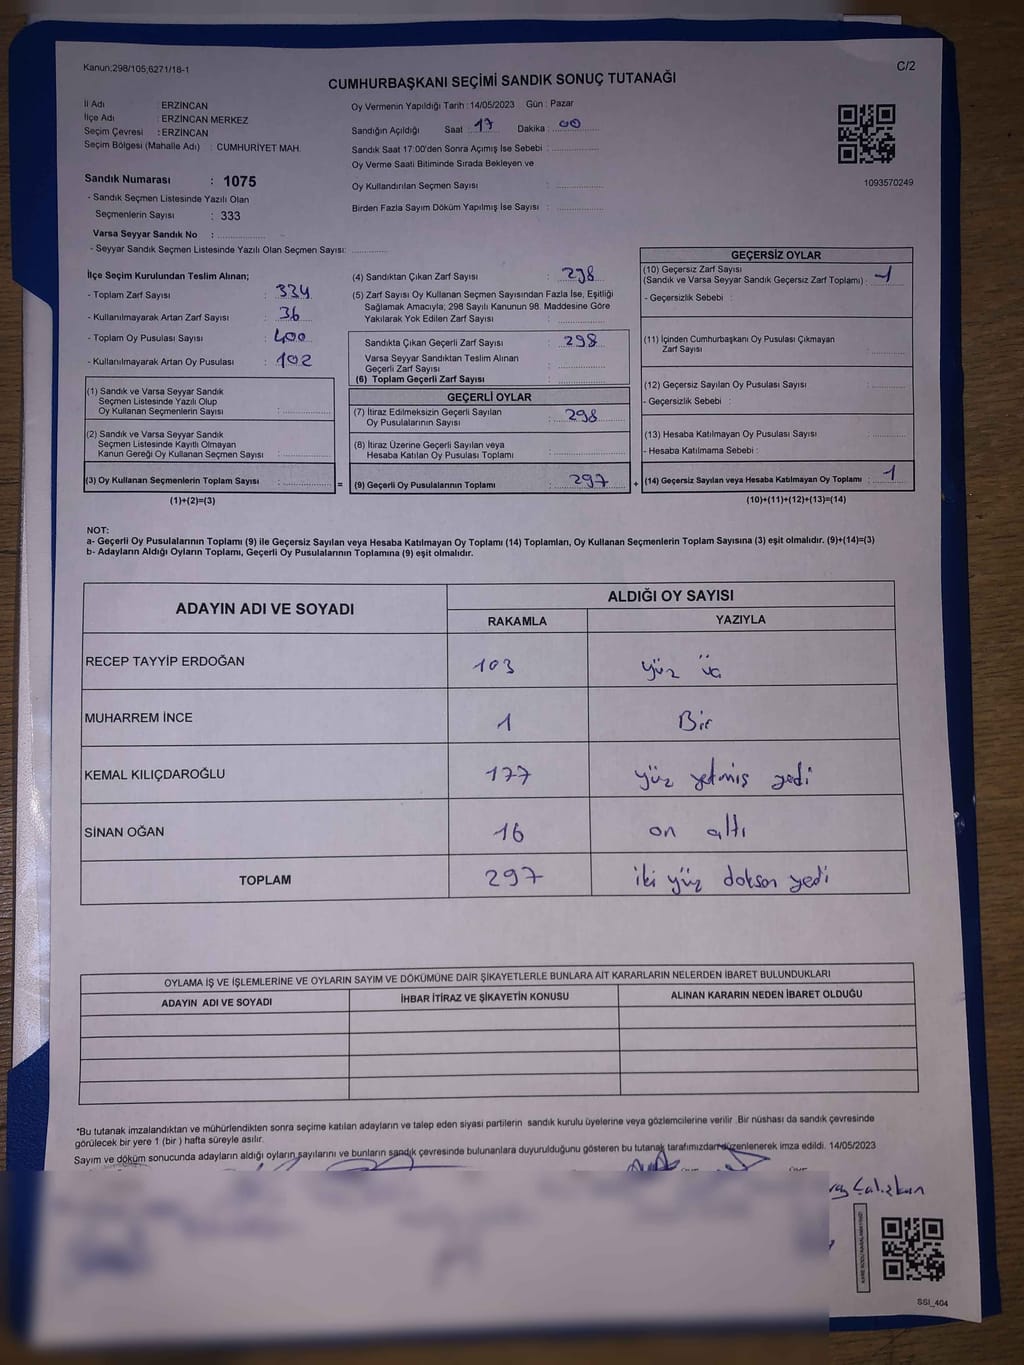 Kanun:298/105;6271/18-1
C/2
CUMHURBAŞKANI SEÇİMİ SANDIK SONUÇ TUTANAĞI
İl Adı : ERZİNCAN
İlçe Adı : ERZİNCAN MERKEZ
Seçim Çevresi : ERZİNCAN
Seçim Bölgesi (Mahalle Adı) : CUMHURİYET MAH.
Oy Vermenin Yapıldığı Tarih : 14/05/2023 Gün : Pazar
Sandığın Açıldığı Saat : 17 Dakika : 00
Sandık Saat 17:00'den Sonra Açılmış İse Sebebi :
Oy Verme Saati Bitiminde Sırada Bekleyen ve
Oy Kullandırılan Seçmen Sayısı :
Birden Fazla Sayım Döküm Yapılmış İse Sayısı :
1093570249
Sandık Numarası : 1075
- Sandık Seçmen Listesinde Yazılı Olan
Seçmenlerin Sayısı : 333
Varsa Seyyar Sandık No :
- Seyyar Sandık Seçmen Listesinde Yazılı Olan Seçmen Sayısı:
İlçe Seçim Kurulundan Teslim Alınan;
- Toplam Zarf Sayısı : 334
- Kullanılmayarak Artan Zarf Sayısı : 36
- Toplam Oy Pusulası Sayısı : 400
- Kullanılmayarak Artan Oy Pusulası : 102
(1) Sandık ve Varsa Seyyar Sandık
Seçmen Listesinde Yazılı Olup
Oy Kullanan Seçmenlerin Sayısı :
(2) Sandık ve Varsa Seyyar Sandık
Seçmen Listesinde Kayıtlı Olmayan
Kanun Gereği Oy Kullanan Seçmen Sayısı :
(3) Oy Kullanan Seçmenlerin Toplam Sayısı :
(1)+(2)=(3)
=
(4) Sandıktan Çıkan Zarf Sayısı : 298
(5) Zarf Sayısı Oy Kullanan Seçmen Sayısından Fazla İse, Eşitliği
Sağlamak Amacıyla; 298 Sayılı Kanunun 98. Maddesine Göre
Yakılarak Yok Edilen Zarf Sayısı :
Sandıkta Çıkan Geçerli Zarf Sayısı : 298
Varsa Seyyar Sandıktan Teslim Alınan
Geçerli Zarf Sayısı :
(6) Toplam Geçerli Zarf Sayısı :
GEÇERLİ OYLAR
(7) İtiraz Edilmeksizin Geçerli Sayılan
Oy Pusulalarının Sayısı : 298
(8) İtiraz Üzerine Geçerli Sayılan veya
Hesaba Katılan Oy Pusulası Toplamı :
(9) Geçerli Oy Pusulalarının Toplamı : 297
+
GEÇERSİZ OYLAR
(10) Geçersiz Zarf Sayısı
(Sandık ve Varsa Seyyar Sandık Geçersiz Zarf Toplamı) : 1
- Geçersizlik Sebebi :
(11) İçinden Cumhurbaşkanı Oy Pusulası Çıkmayan
Zarf Sayısı :
(12) Geçersiz Sayılan Oy Pusulası Sayısı :
- Geçersizlik Sebebi :
(13) Hesaba Katılmayan Oy Pusulası Sayısı :
- Hesaba Katılmama Sebebi :
(14) Geçersiz Sayılan veya Hesaba Katılmayan Oy Toplamı : 1
(10)+(11)+(12)+(13)=(14)
NOT:
a- Geçerli Oy Pusulalarının Toplamı (9) ile Geçersiz Sayılan veya Hesaba Katılmayan Oy Toplamı (14) Toplamları, Oy Kullanan Seçmenlerin Toplam Sayısına (3) eşit olmalıdır. (9)+(14)=(3)
b- Adayların Aldığı Oyların Toplamı, Geçerli Oy Pusulalarının Toplamına (9) eşit olmalıdır.
ADAYIN ADI VE SOYADI
ALDIĞI OY SAYISI
RAKAMLA YAZIYLA
RECEP TAYYİP ERDOĞAN 103 yüz üç
MUHARREM İNCE 1 Bir
KEMAL KILIÇDAROĞLU 177 yüz yetmiş yedi
SİNAN OĞAN 16 on altı
TOPLAM 297 iki yüz doksan yedi
OYLAMA İŞ VE İŞLEMLERİNE VE OYLARIN SAYIM VE DÖKÜMÜNE DAİR ŞİKAYETLERLE BUNLARA AİT KARARLARIN NELERDEN İBARET BULUNDUKLARI
ADAYIN ADI VE SOYADI İHBAR İTİRAZ VE ŞİKAYETİN KONUSU ALINAN KARARIN NEDEN İBARET OLDUĞU
*Bu tutanak imzalandıktan ve mühürlendikten sonra seçime katılan adayların ve talep eden siyasi partilerin sandık kurulu üyelerine veya gözlemcilerine verilir .Bir nüshası da sandık çevresinde
görülecek bir yere 1 (bir ) hafta süreyle asılır.
Sayım ve döküm sonucunda adayların aldığı oyların sayılarını ve bunların sandık çevresinde bulunanlara duyurulduğunu gösteren bu tutanak tarafımızdan düzenlenerek imza edildi. 14/05/2023
SSI_404